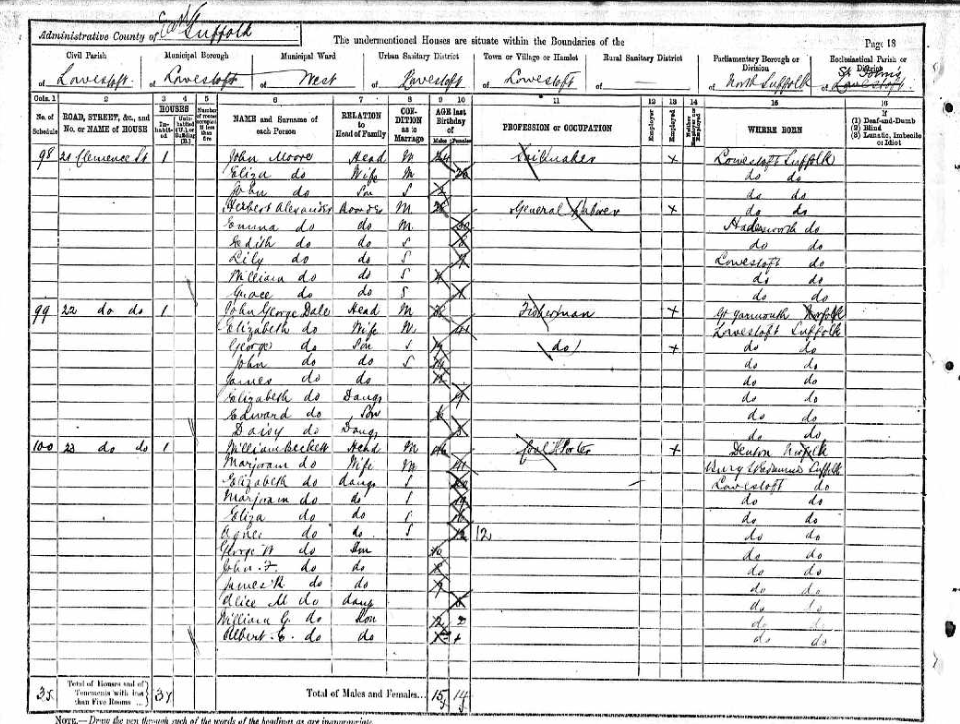 Administrative County of East Suffolk
The undermentioned Houses are situate within the Boundaries of the
Page 18
Civil Parish of Lowestoft
Municipal Borough of Lowestoft
Municipal Ward of West
Urban Sanitary District of Lowestoft
Town or Village or Hamlet of Lowestoft
Rural Sanitary District of
Parliamentary Borough or Division of North Suffolk
Ecclesiastical Parish or District of St Johns Lowestoft
Cols. 1 2 3 4 5 6 7 8 9 10 11 12 13 14 15 16
No. of Schedule
ROAD, STREET, &c., and No. or NAME of HOUSE
HOUSES
Inhabited
Uninhabited (U.), or Building (B.)
Number of rooms occupied if less than five
NAME and Surname of each Person
RELATION to Head of Family
CONDITION as to Marriage
AGE last Birthday of
Males Females
PROFESSION or OCCUPATION
Employer
Employed
Neither Employer nor Employed
WHERE BORN
If
(1) Deaf-and-Dumb
(2) Blind
(3) Lunatic, Imbecile or Idiot
98 21 Clemence St 1 John Moore Head M Sailmaker x Lowestoft Suffolk
Eliza do Wife M do do
John do Son S do do
Herbert Alexander M General Labourer x do do
Emma do do M do
Edith do do S do do
Lily do do S Lowestoft do
William do do S do do
Grace do do S do do
99 22 do do 1 John George Dale Head M Fisherman x Gt Yarmouth Norfolk
Elizabeth do Wife M Lowestoft Suffolk
George do Son S do x do do
John do do S do do
James do do do do
Elizabeth do Daug 9
Edward do Son 6 do do
Daisy do Daug 3 do do
100 23 do do 1 William Beckett Head M 46 Coal Porter x Denton Norfolk
Marjoram do Wife M 41 Suffolk
Elizabeth do daug S Lowestoft do
Marjoram do do S do do
Eliza do do S do do
Agnes do do S 12 12 do do
George W do Son 10 do do
John F. do do do do
James R do do do do
Alice M do daug do do
William G. do Son do do
Albert E. do do do do
35 Total of Houses and of Tenements with less than Five Rooms ... 3
Total of Males and Females... 15 14
NOTE.—Draw the pen through such of the words of the headings as are inappropriate.